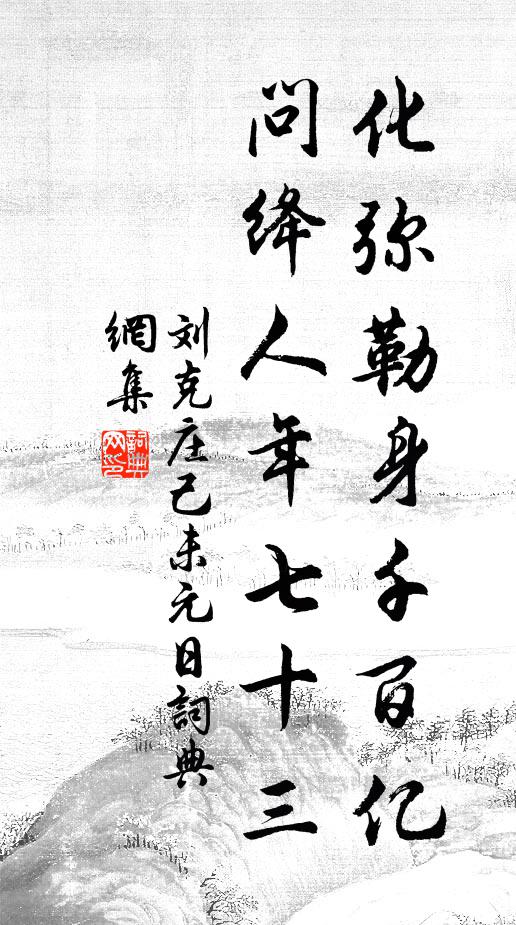 化弥勒身千百亿
问绛人年七十三
刘克庄己未元日詞典
網集
詞典网印